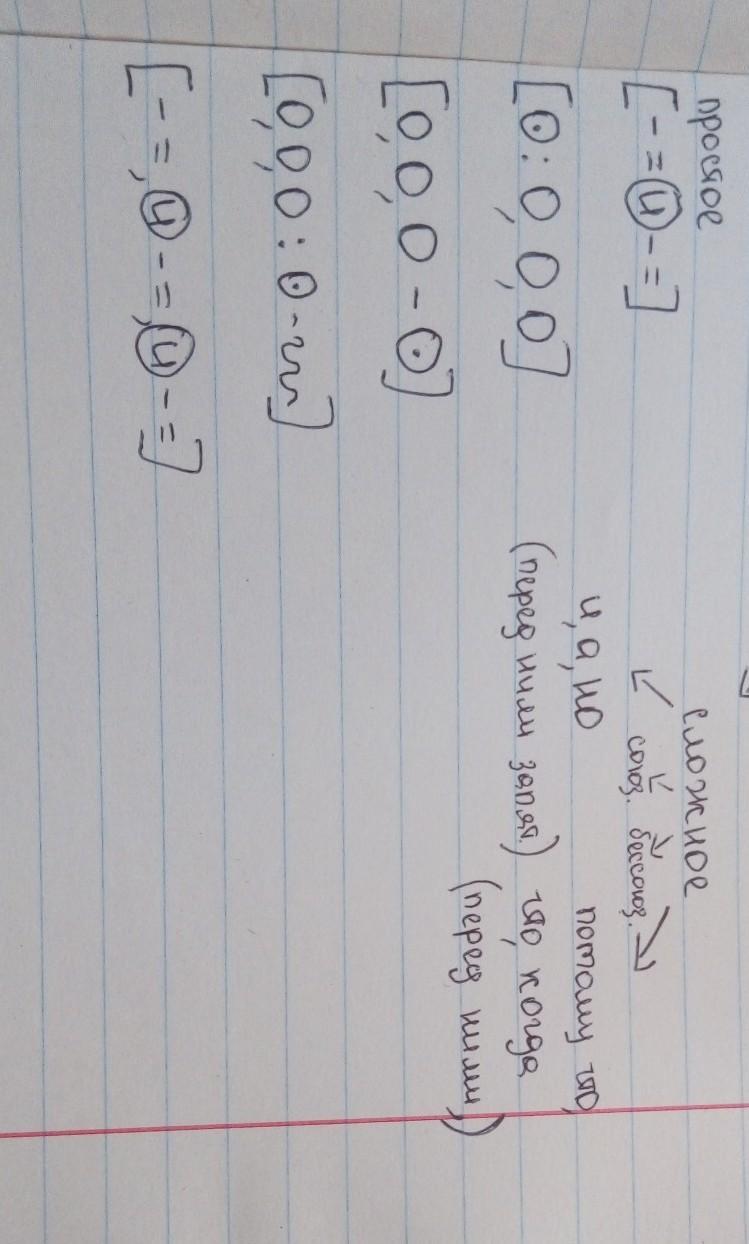 простое
[- = и - =]
[⊙: O, O, O]
[O, O, O - ⊙]
[O, O, O : ⊙ - ~~]
[- =, и - =, и - =]
сложное
союз. бессоюз.
и, а, но
(перед ними запят.)
потому что,
что, когда
(перед ними,)